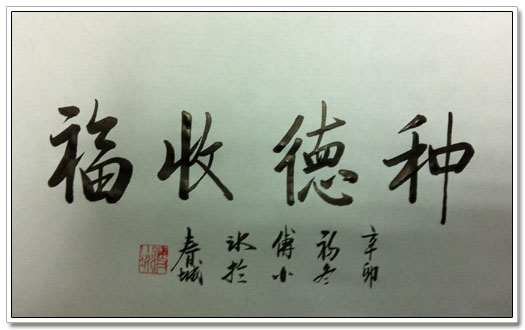 种德收福
辛卯
初冬
傅小
冰於
春城